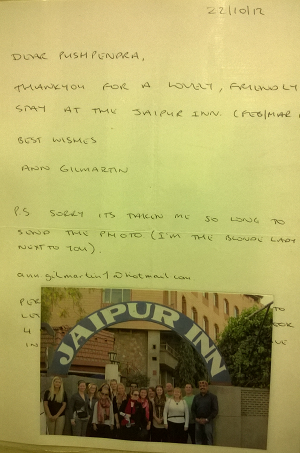 22/10/12
DEAR PUSHPENDRA,
THANKYOU FOR A LOVELY, FRIENDLY
STAY AT THE JAIPUR INN. (FEB/MAR
BEST WISHES
ANN GILMARTIN
PS SORRY ITS TAKEN ME SO LONG TO
SEND THE PHOTO (I'M THE BLONDE LADY
NEXT TO YOU).
ann.gilmartin1@hotmail.com
JAIPUR INN